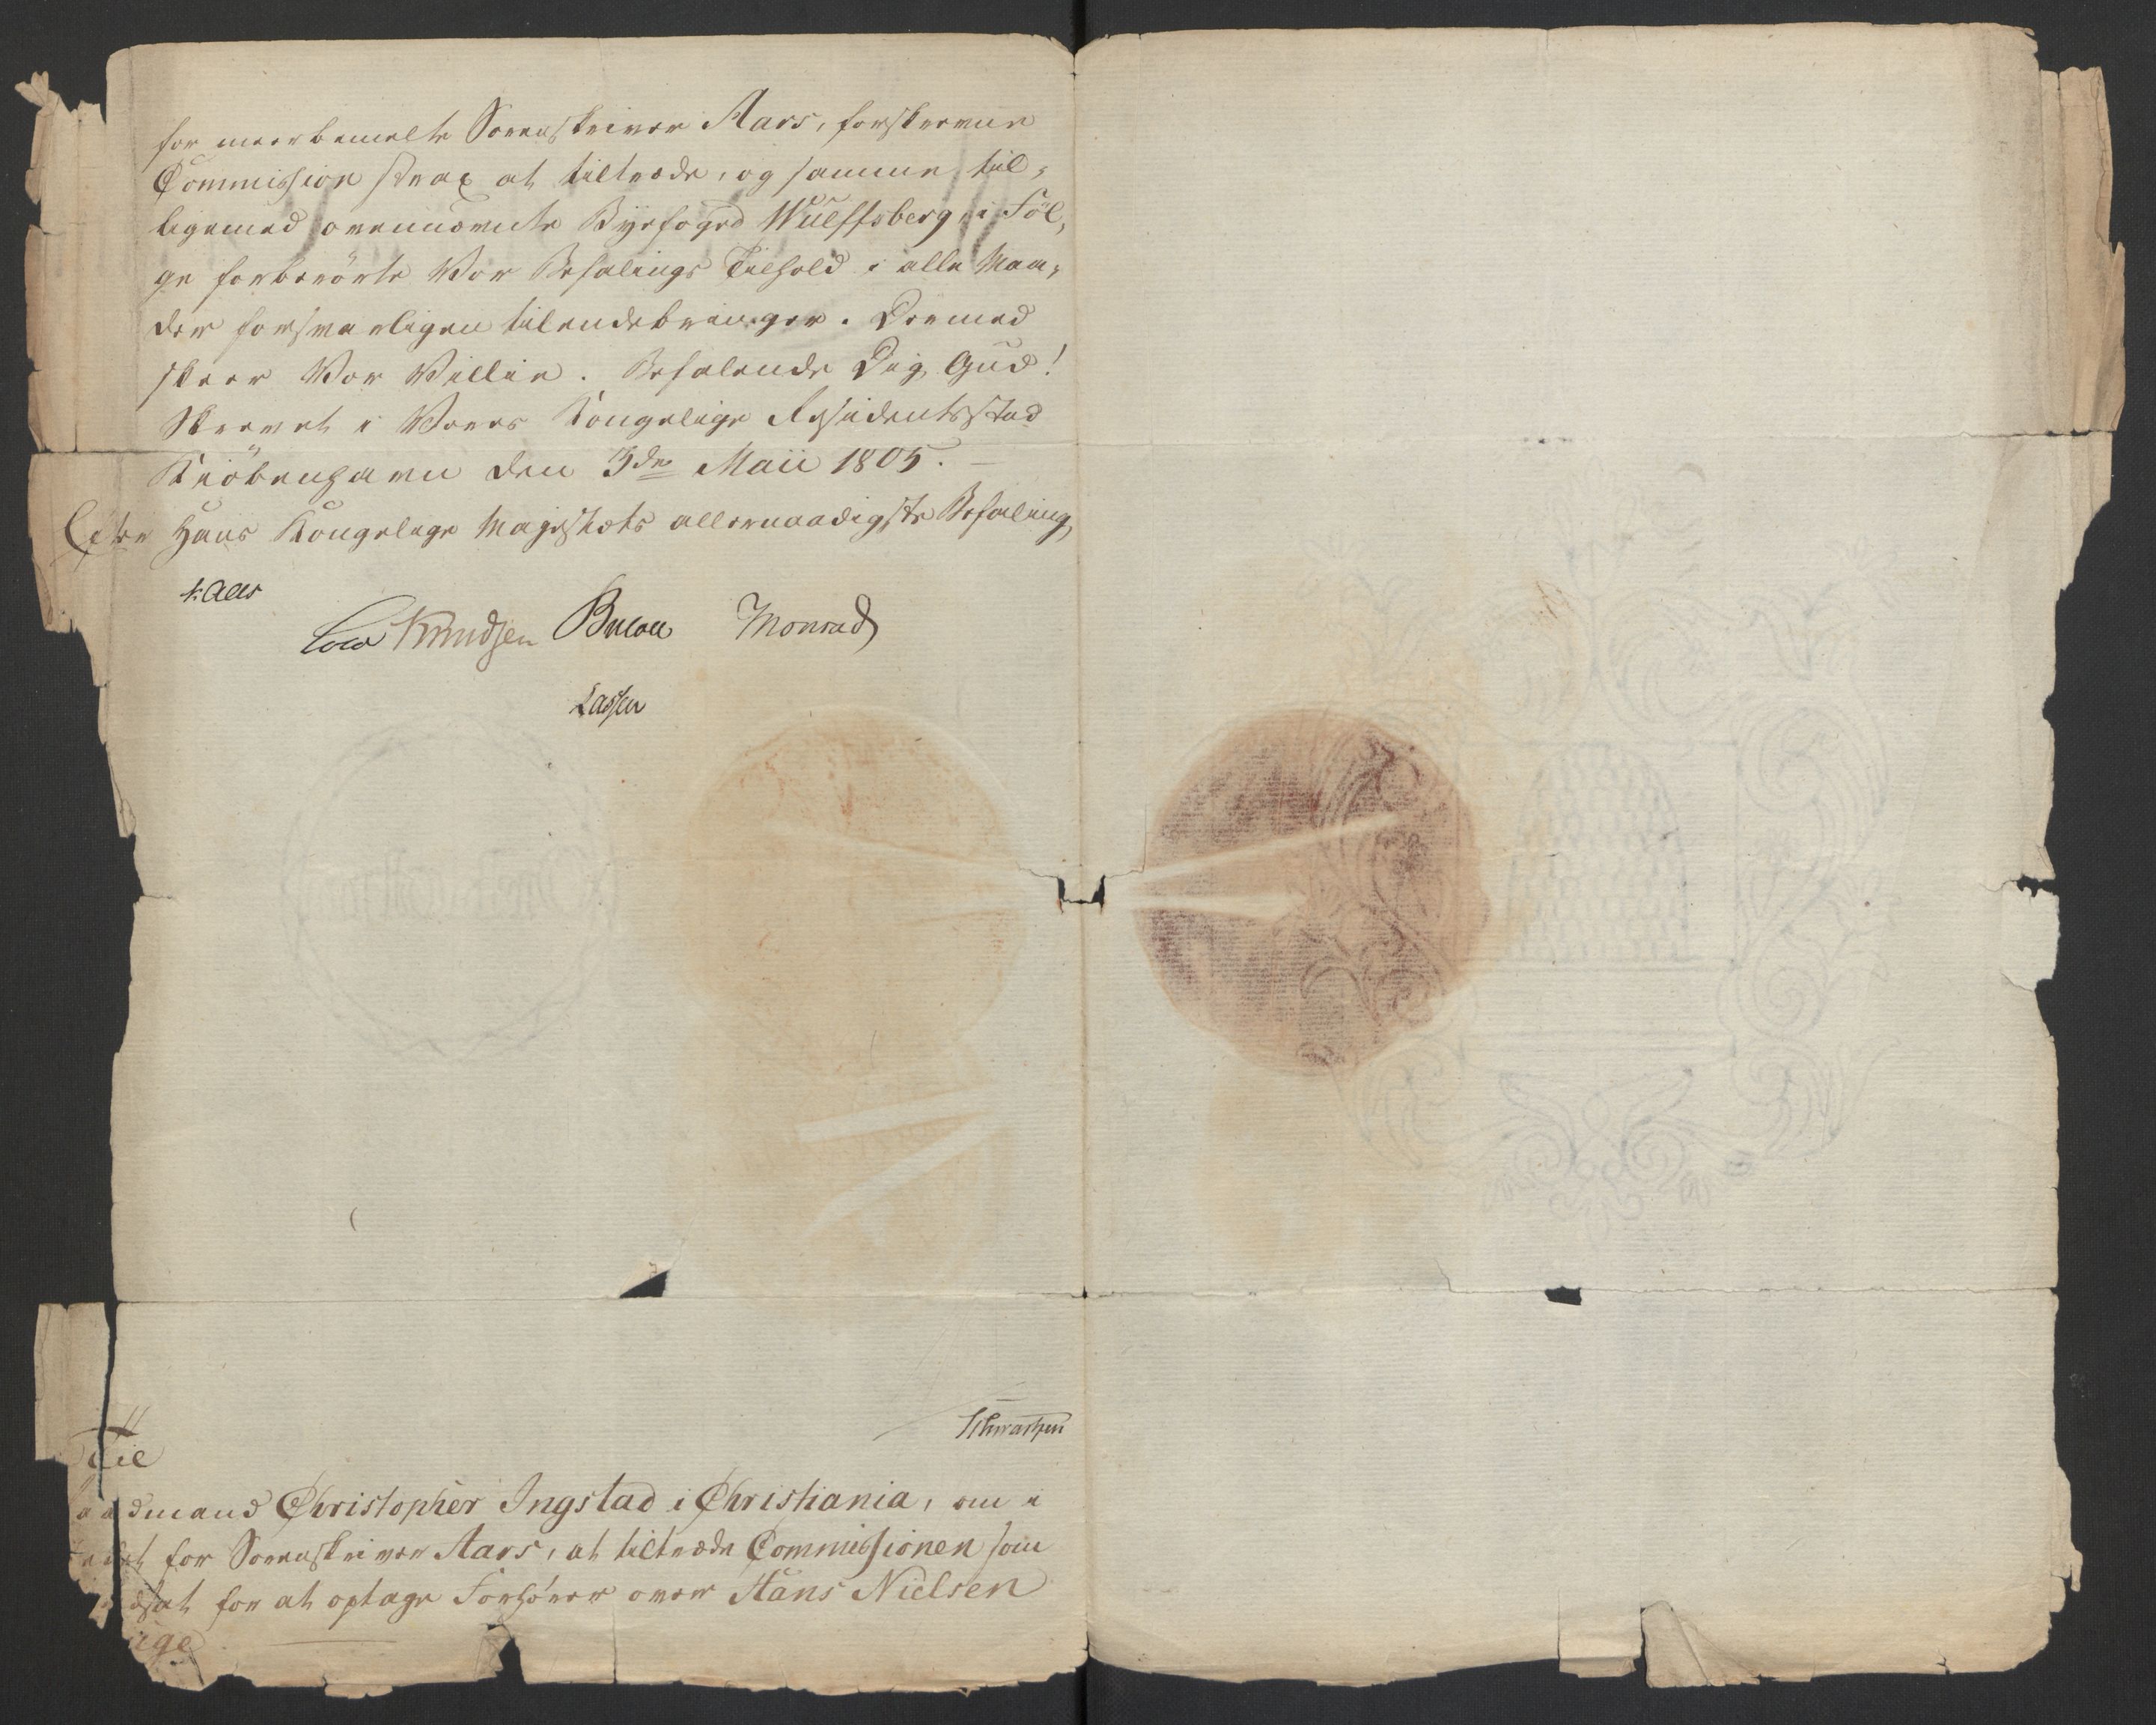 for meerbemelte Sorenskriver Aars, forskrevne
Commission strax at tiltræde, og samme til,
ligemed ovennævnte Byefoged Wulffsberg, i Föl,
ge forberörte Vor Befalings Tilhold i alle Maa,
der forsvarligen tilendebringer. Dermed
skeer Vor Villie. Befalende Dig Gud!
Skrevet i Vores Kongelige Residentsstad
Kiöbenhavn den 3de Maii 1805. —
Efter Hans Kongelige Majestæts allernaadigste Befaling,
Kaas
Cold Knudsen Bülow Monrad
Lassen
Til
aadmand Christopher Ingstad i Christiania, om i
edet for Sorenskriver Aars, at tiltræde Commissionen som
dsat for at optage Forhörer over Hans Nielsen
uge